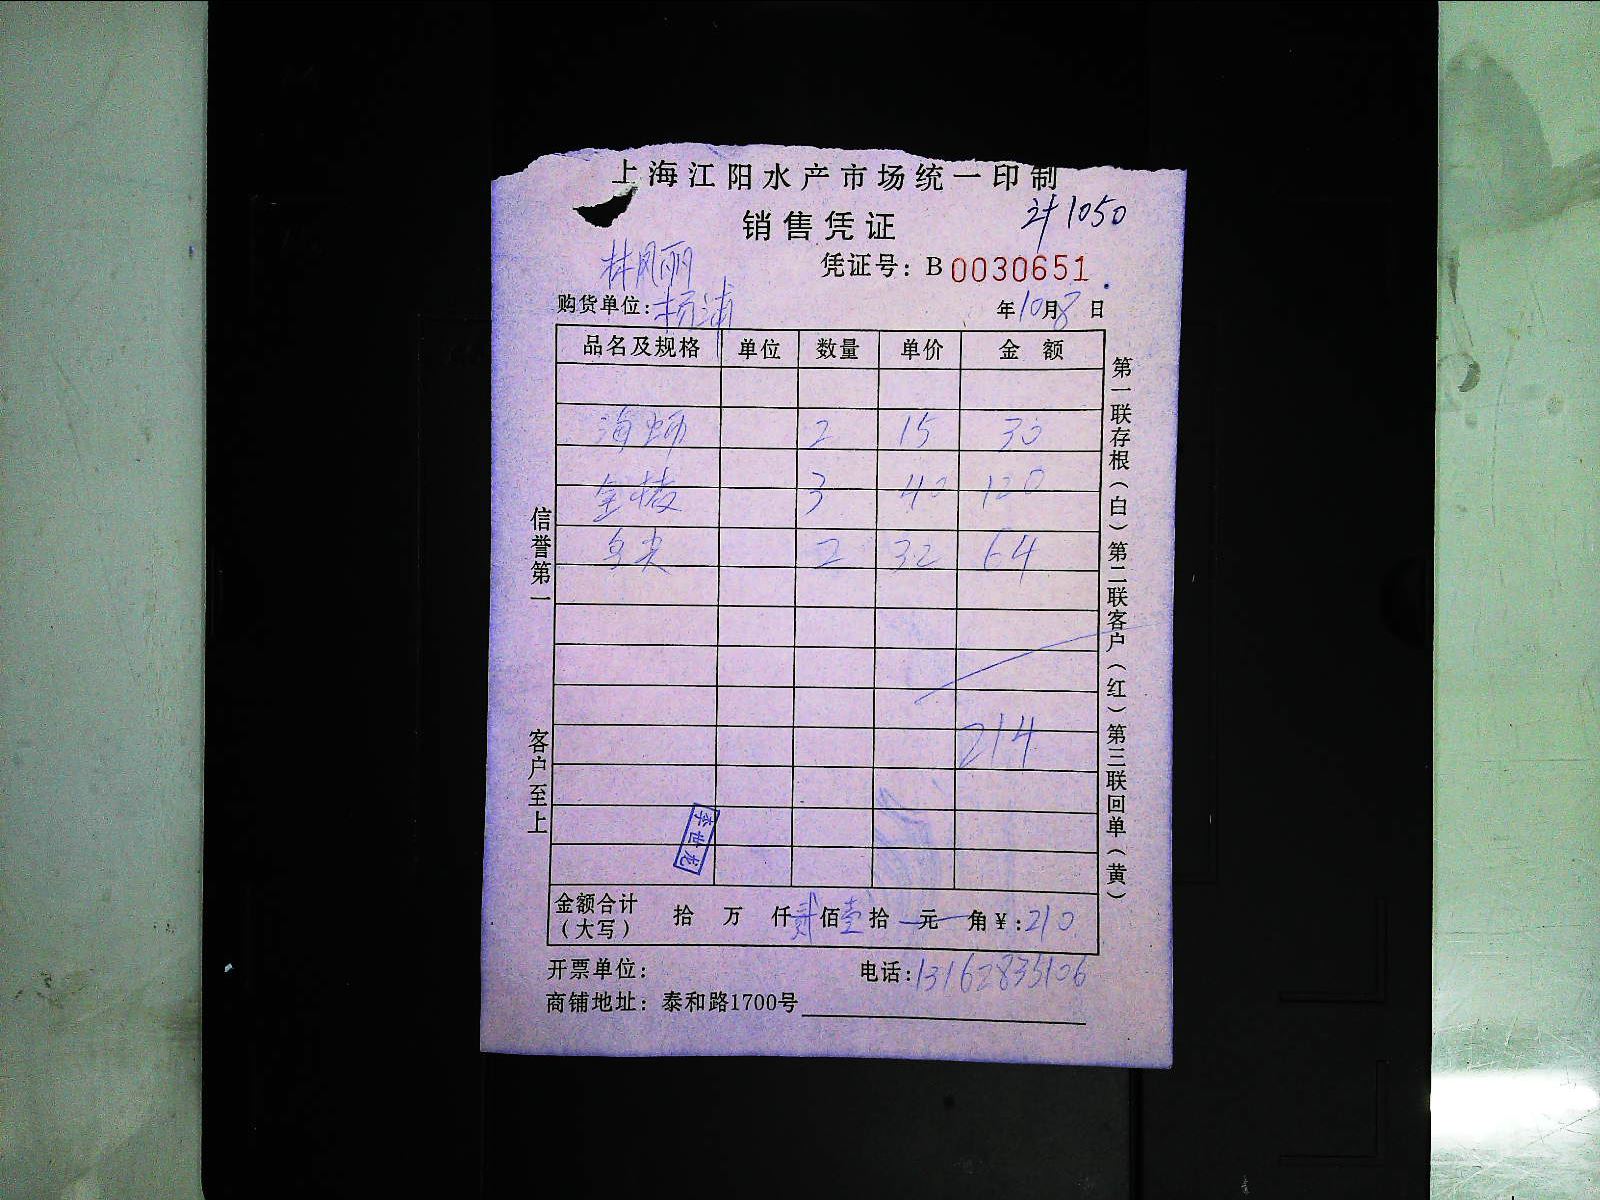 上海江阳水产市场统一印制
销售凭证
计1050
林凤丽
凭证号：B 0030651
购货单位：杨浦 年10月8日
品名及规格 单位 数量 单价 金额
海蛎 2 15 30
金鲳 3 40 120
2 32 64
214
李世龙
金额合计（大写） 拾 万 仟贰佰壹拾 元 角￥：210
开票单位： 电话：13162835106
商铺地址：泰和路1700号
信誉第一 客户至上
第一联存根（白）第二联客户（红）第三联回单（黄）